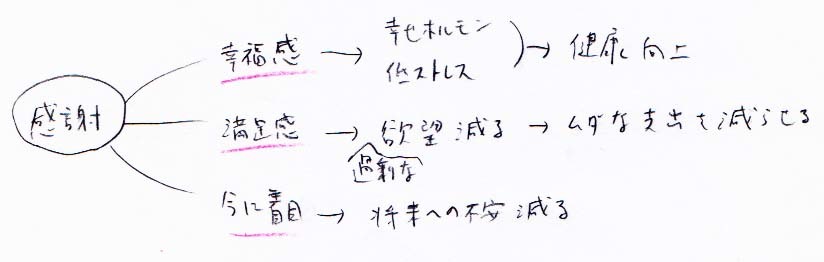 感謝
幸福感 → 幸せホルモン
低ストレス → 健康向上
満足感 → 欲望減る → ムダな支出を減らせる
過剰な
今に着目 → 将来への不安減る